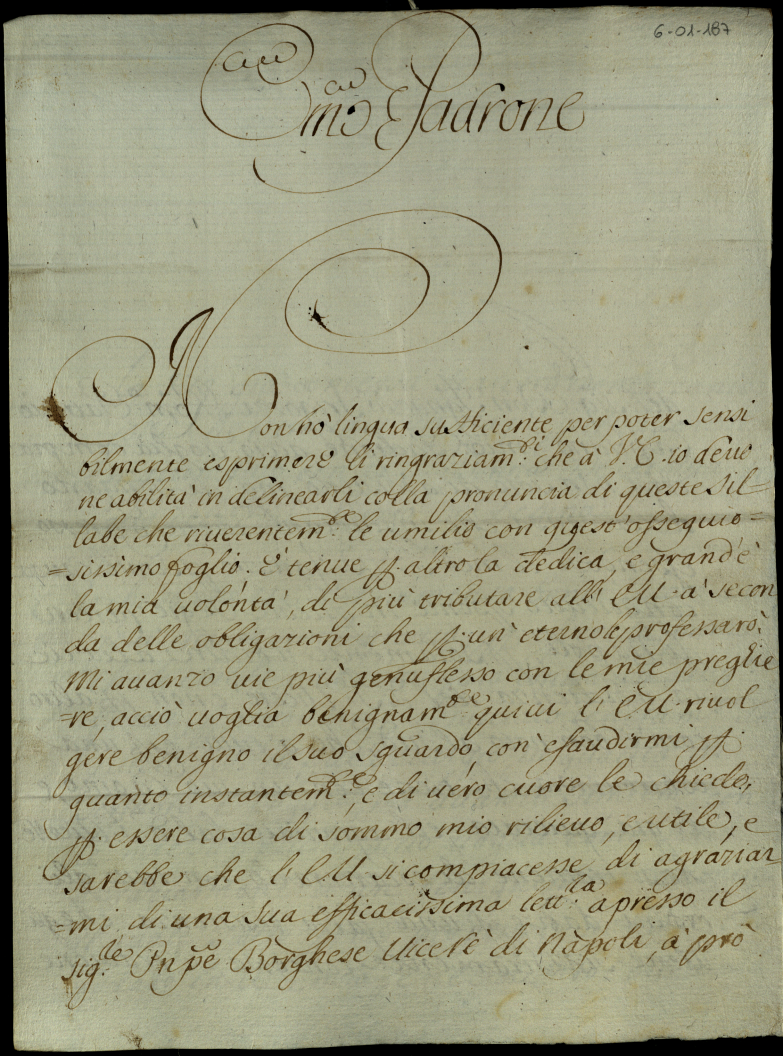 6-01-187
Em̃o E Padrone
Non hò lingua sufficiente per poter sensi
bilmente esprimere li ringraziam:ti che à V.E. io deuo
ne abilità in delinearli colla pronuncia di queste sil
labe che riuerentem:te le umilio con quest'ossequio=
=sissimo foglio. E' tenue p. altro la dedica, e grand'è
la mia uolontà, di più tributare all' E.V. à secon
da delle obligazioni che p. un' eterno le professarò.
Mi auanzo uie più genuflesso con le mie preghie
=re, acciò uoglia benignam:te quiui l' E.V. riuol
gere benigno il suo sguardo, con esaudirmi p.
quanto instantem:te, e di uero cuore le chiedo,
p. essere cosa di sommo mio rilieuo, e utile, e
sarebbe che l' E.V. si compiacesse di agraziar
=mi di una sua efficacissima lett:ra apresso il
sig:re Pnpe Borghese Vicerè di Napoli, à prò